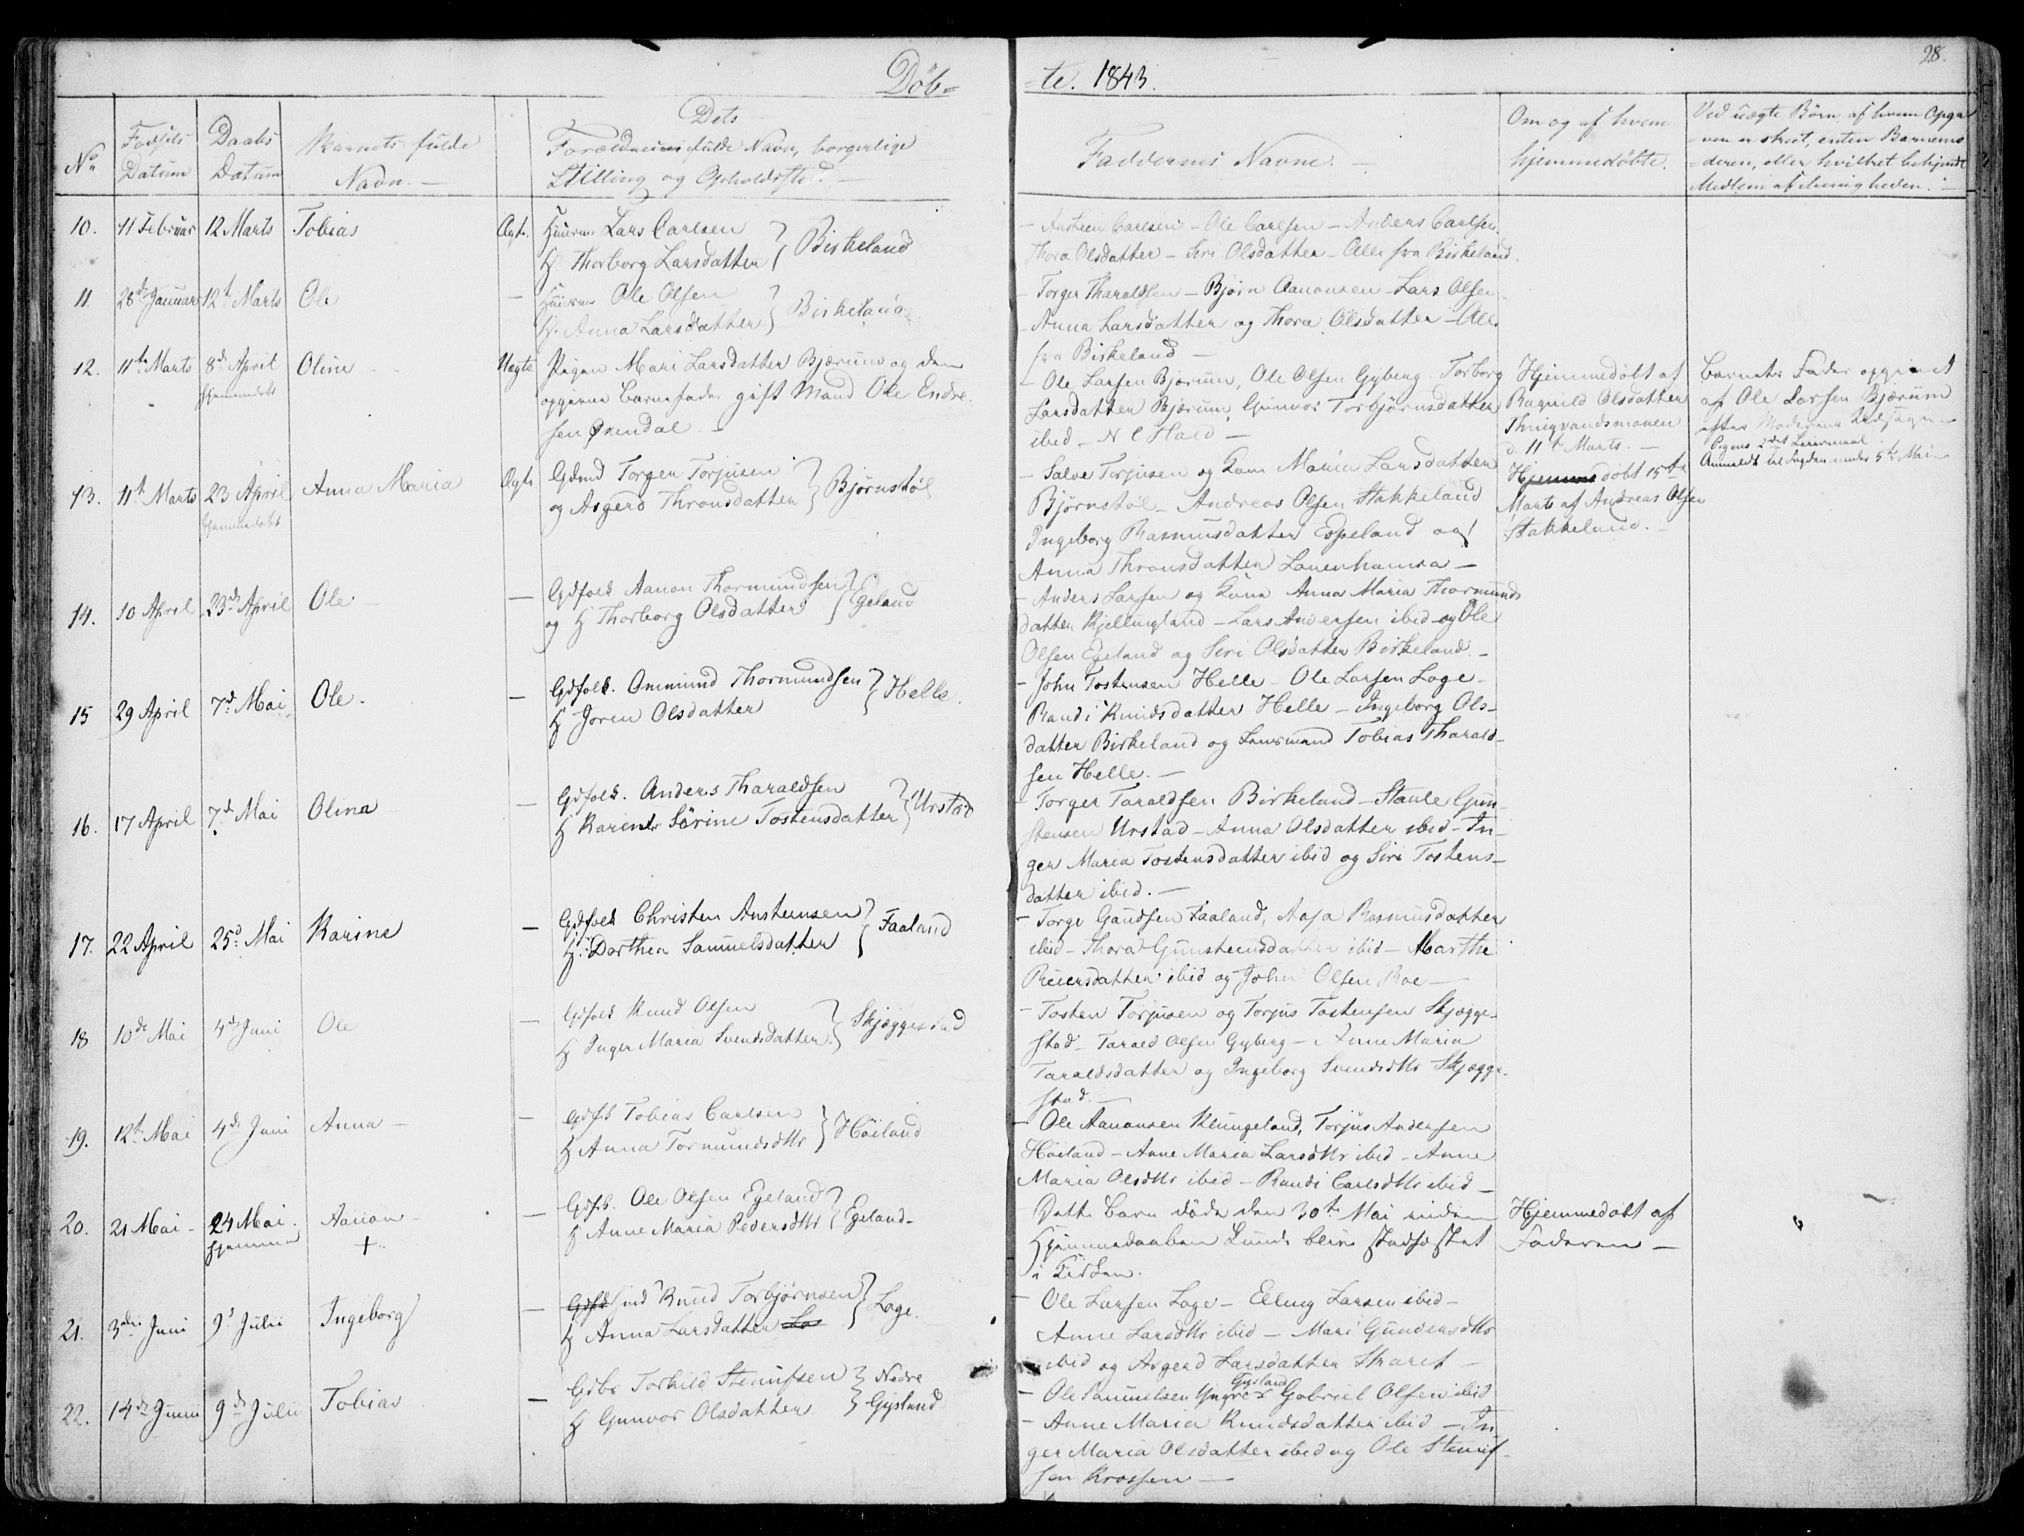 Døb-
-te. 1843.
28.
No
Fødsels Datum
Daabs Datum
Barnets fulde Navn. -
Dets Forældres fulde Navn, borgerlige Stilling og Opholdsted. -
Faddernes Navne. -
Om og af hvem hjemmedøbte.
Ved uægte Børn, af hvem Opga-
-ven er skeet, enten Barnemo-
-deren, eller hvilket bekjendt
Medlem af Menigheden. -
10. 11 Februar 12 Marts Tobias Ægte. Huusm Lars Carlsen
H Thorborg Larsdatter } Birkeland
- Austein Carlsen - Ole Carlsen - Anders Carlsen.
Thora Olsdatter - Siri Olsdatter - Alle fra Birkeland.
11. 28de Januar 12te Marts Ole - Huusm Ole Olsen
H. Anna Larsdatter } Birkeland
- Torger Tharaldsen - Bjørn Aanonsen - Lars Olsen -
- Anna Larsdatter og Thora Olsdatter - Alle
fra Birkeland -
12. 11te Marts 8de April Hjemmedøbt Oline Uægte Pigen Mari Larsdatter Bjærum og den
opgivne Barnefader gift Mand Ole Endre-
sen Øxendal. -
- Ole Larsen Bjærum, Ole Olsen Gyberg - Torborg
Larsdatter Bjærum, Gunvor Torbjørnsdatter
ibid - N C Hald -
Hjemmedøbt af
Ragnild Olsdatter
d. 11te Marts. -
Barnets Fader opgivet
af Ole Larsen Bjærum
efter Moderens Udsagn -
Pigens 2det Leiermaal
Anmeldt til Fogden under 5te Mai -
13. 11te Marts 23 April Hjemmedøbt Anna Maria Ægte Gdmd Torger Torjusen
og Asgerd Thronsdatter } Bjørnstøl
- Salve Torjusen og Kone Maria Larsdatter
Bjørnstøl - Andreas Olsen Stakkeland
Ingeborg Rasmusdatter Espeland og
Anna Thronsdatter Lauenhamra -
Hjemmedøbt 15te
Marts af Andreas Olsen
Stakkeland. -
14. 10 April 23de April Ole - - Gdfolk Aanon Thormundsen
og H Thorborg Olsdatter } Egeland
- Anders Larsen og Kone Anna Maria Thormunds
datter Kjellingland - Lars Andersen ibid og Ole
Olsen Egeland og Siri Olsdatter Birkeland. -
15 29 April 7de Mai Ole. - Gdfolk. Ommund Thormundsen
H Joren Olsdatter } Helle.
- John Tostensen Helle - Ole Larsen Loge -
Randi Knudsdatter Helle - Ingeborg Ols-
datter Birkeland og Lensmand Tobias Tharald-
sen Helle. -
16. 17 April 7de Mai Olina - Gdfolk. Anders Tharaldsen
H Karen Sørine Tostensdatter } Urstad
- Torger Taraldsen Birkeland - Staale Gun-
stensen Urstad - Anna Olsdatter ibid - In-
ger Maria Tostensdatter ibid og Siri Tostens-
datter ibid. -
17. 22 April 25d. Mai Karine - Gdfolk Christen Austeinsen
H. Dorthea Samuelsdatter } Faaland
- Torge Gaudsen Faaland, Aasa Rasmusdatter
ibid - Thora Gunsteinsdatter ibid - Marthe
Reiersdatter ibid og John Olsen Roe -
18 10de Mai 4de Juni Ole - Gdfolk Knud Olsen
H Inger Maria Svendsdatter } Skjæggestad
- Tosten Torjusen og Torjus Tostensen Skjægge-
stad - Tarald Olsen Gyberg - Anne Maria
Taraldsdatter og Ingeborg Svendsdtr Skjægge-
stad -
19. 12te Mai 4de Juni Anna - - Gdfk Tobias Carlsen
H Anna Tormundsdtr } Høiland
- Ole Aanonsen Klungeland, Torjus Andersen
Høiland - Anne Maria Larsdtr ibid - Anne
Maria Olsdtr ibid - Randi Carlsdtr ibid -
20. 21 Mai - 24 Mai. hjemme Aanon + - Gdfk. Ole Olsen Egeland
H Anne Maria Pedersdtr } Egeland -
- Dette Barn døde den 30te Mai inden
Hjemmedaaben kunde blive stadfæstet
i Kirken.
Hjemmedøbt af
Faderen -
21. 3die Juni 9d Julii Ingeborg - Knud Torbjørnsen
H Anna Larsdatter } Loge.
- Ole Larsen Loge - Elling Larsen ibid -
Anne Larsdtr ibid - Mari Gundersdtr
ibid og Asgerd Larsdatter Skaret -
22. 14de Juni 9de Julii Tobias - Gdbr Torkild Stenersen
H Gunvor Olsdatter } Nedre Gysland
- Ole Samuelsen Yngre Gysland Gabriel Olsen ibid
- Anne Maria Knudsdatter ibid - In-
ger Maria Olsdatter ibid og Ole
sen Krossen -